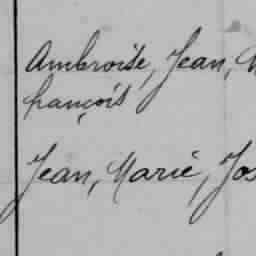 Ambroise, Jean,
françois
Jean, Marie, Jos